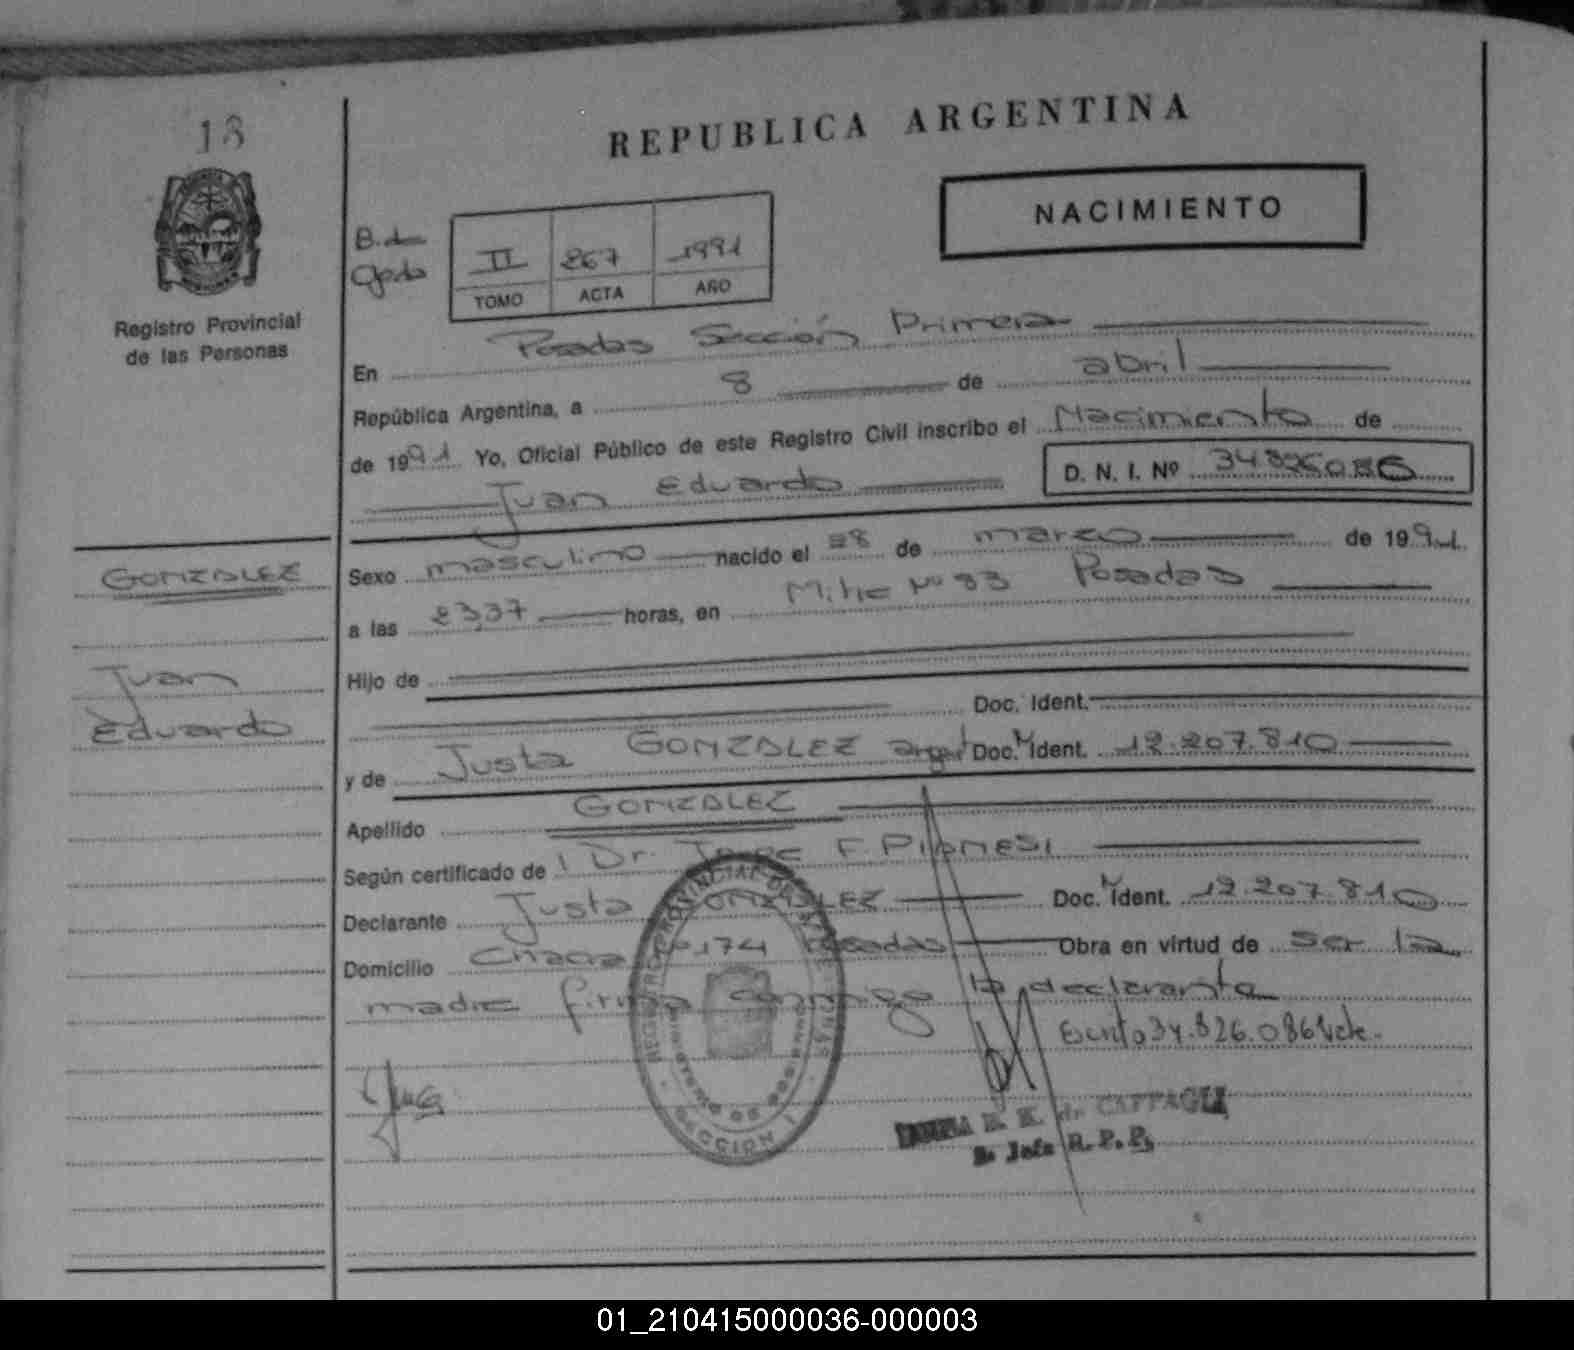 13
REPUBLICA ARGENTINA
NACIMIENTO
Registro Provincial
de las Personas
B. de
Gpdo
II 267 1991
TOMO ACTA AÑO
En Posadas Sección Primera
República Argentina, a 8 de abril
de 1991 Yo, Oficial Público de este Registro Civil inscribo el Nacimiento de
Juan Eduardo D. N. I. Nº 34.826.086
GONZALEZ
Juan
Eduardo
Sexo masculino nacido el 28 de marzo de 1991
a las 2337 horas, en Mitre Nº 33 Posadas
Hijo de
Doc. Ident.
y de Justa GONZALEZ argent Doc. Ident. 12.207.810
Apellido GONZALEZ
Según certificado de Dr. Jorge F. PIONESI
Declarante Justa GONZALEZ Doc. Ident. 12.207.810
Domicilio Chacra Nº 174 Posadas Obra en virtud de ser la
madre firma conmigo la declarante
34.826.086 Vale.
de CAPPAGLI
Jefe R. P. P.
REGISTRO PROVINCIAL DE LAS PERSONAS
SECCION 1
01_210415000036-000003